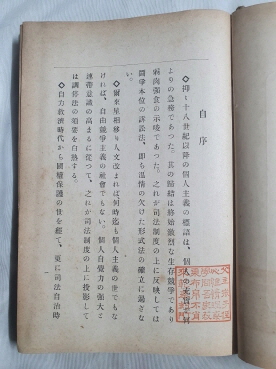 自序
◇抑々十八世紀以降の個人主義の標語は、個人の充實と昇
よりの急務であつた。其の歸結は終始激烈な生存競爭であり
弱肉強食の示唆であつた。之れが司法制度の上に反映しては
鬪爭本位の訴訟法、卽ち溫情の欠けた形式法の確立に過ぎな
い。
◇爾來星相移り人文改まれば何時迄も個人主義の世でもな
ければ、自由競爭主義の社會でもない。個人自覺力の强大と
連帶意識の高まるに從つて、之れが司法制度の上に投影して
は調停法の須要を白熱する。
◇自力救濟時代から國權保護の世を經て、更に司法自治時